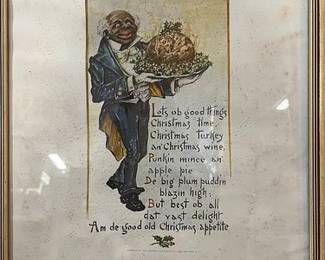 Lots ob good things
Christmas time,
Christmas turkey
an' Christmas wine,
Punkin mince an'
apple pie
De big plum puddin
blazin high;
But best ob all
dat vast delight
Am de good old Christmas appetite